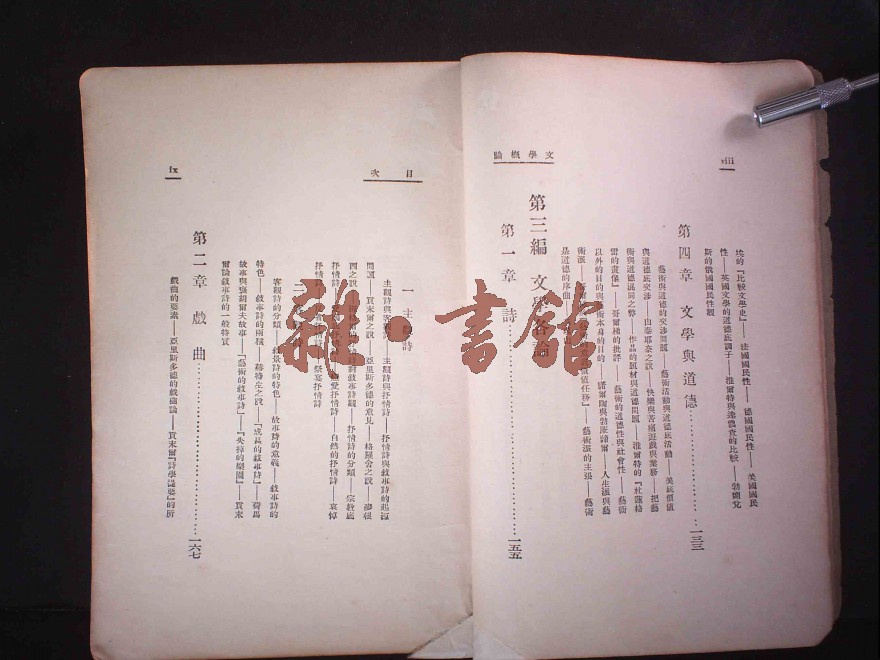 viii
埃的『比較文學史』——法國國民性——德國國民性——美國國民
性——英國文學的道德底調子——淮爾特與達農查的比較——勃蘭兌
斯的俄國國民性觀
第四章 文學與道德……一三三
藝術與道德的交涉問題——藝術活動與道德底活動——美底價值
與道德底交涉——由泰耶奈之說——快樂與苦痛遊戲與業務——把藝
術與道德混同之弊——作品的題材與道德問題——淮爾特的『杜蓮格
雷的畫像』——哥爾梯的批評——藝術的道德性與社會性——藝術
以外的目的與藝術本身的目的——人生派與藝
術派——價值任務』——藝術派的主張——藝術
是道德的序曲
第三編 文學各論
第一章 詩……一五五
文學概論
目次
一 主觀詩
主觀詩與客觀詩——主觀詩與抒情詩——抒情詩與敘事詩的起源
問題——貢末爾之說——亞里斯多德的意見——格羅舍之說——
抒情詩——抒情詩的分類——宗教底
抒情詩——戀愛抒情詩——自然的抒情詩——哀悼
抒情詩——祭宴抒情詩
客觀詩的分類——敘景詩的特色——故事詩的意義——敘事詩的
特色——敘事詩的兩種——赫特生之說——「成長的敘事詩」——荷馬
故事與裴胡爾夫故事——「藝術的敘事詩」——『失掉的樂園』——貢末
爾論敘事詩的一般特質
第二章 戲曲……一六七
戲曲的要素——亞里斯多德的戲曲論——貢末爾『詩學提要』的所
ix
雜·書館